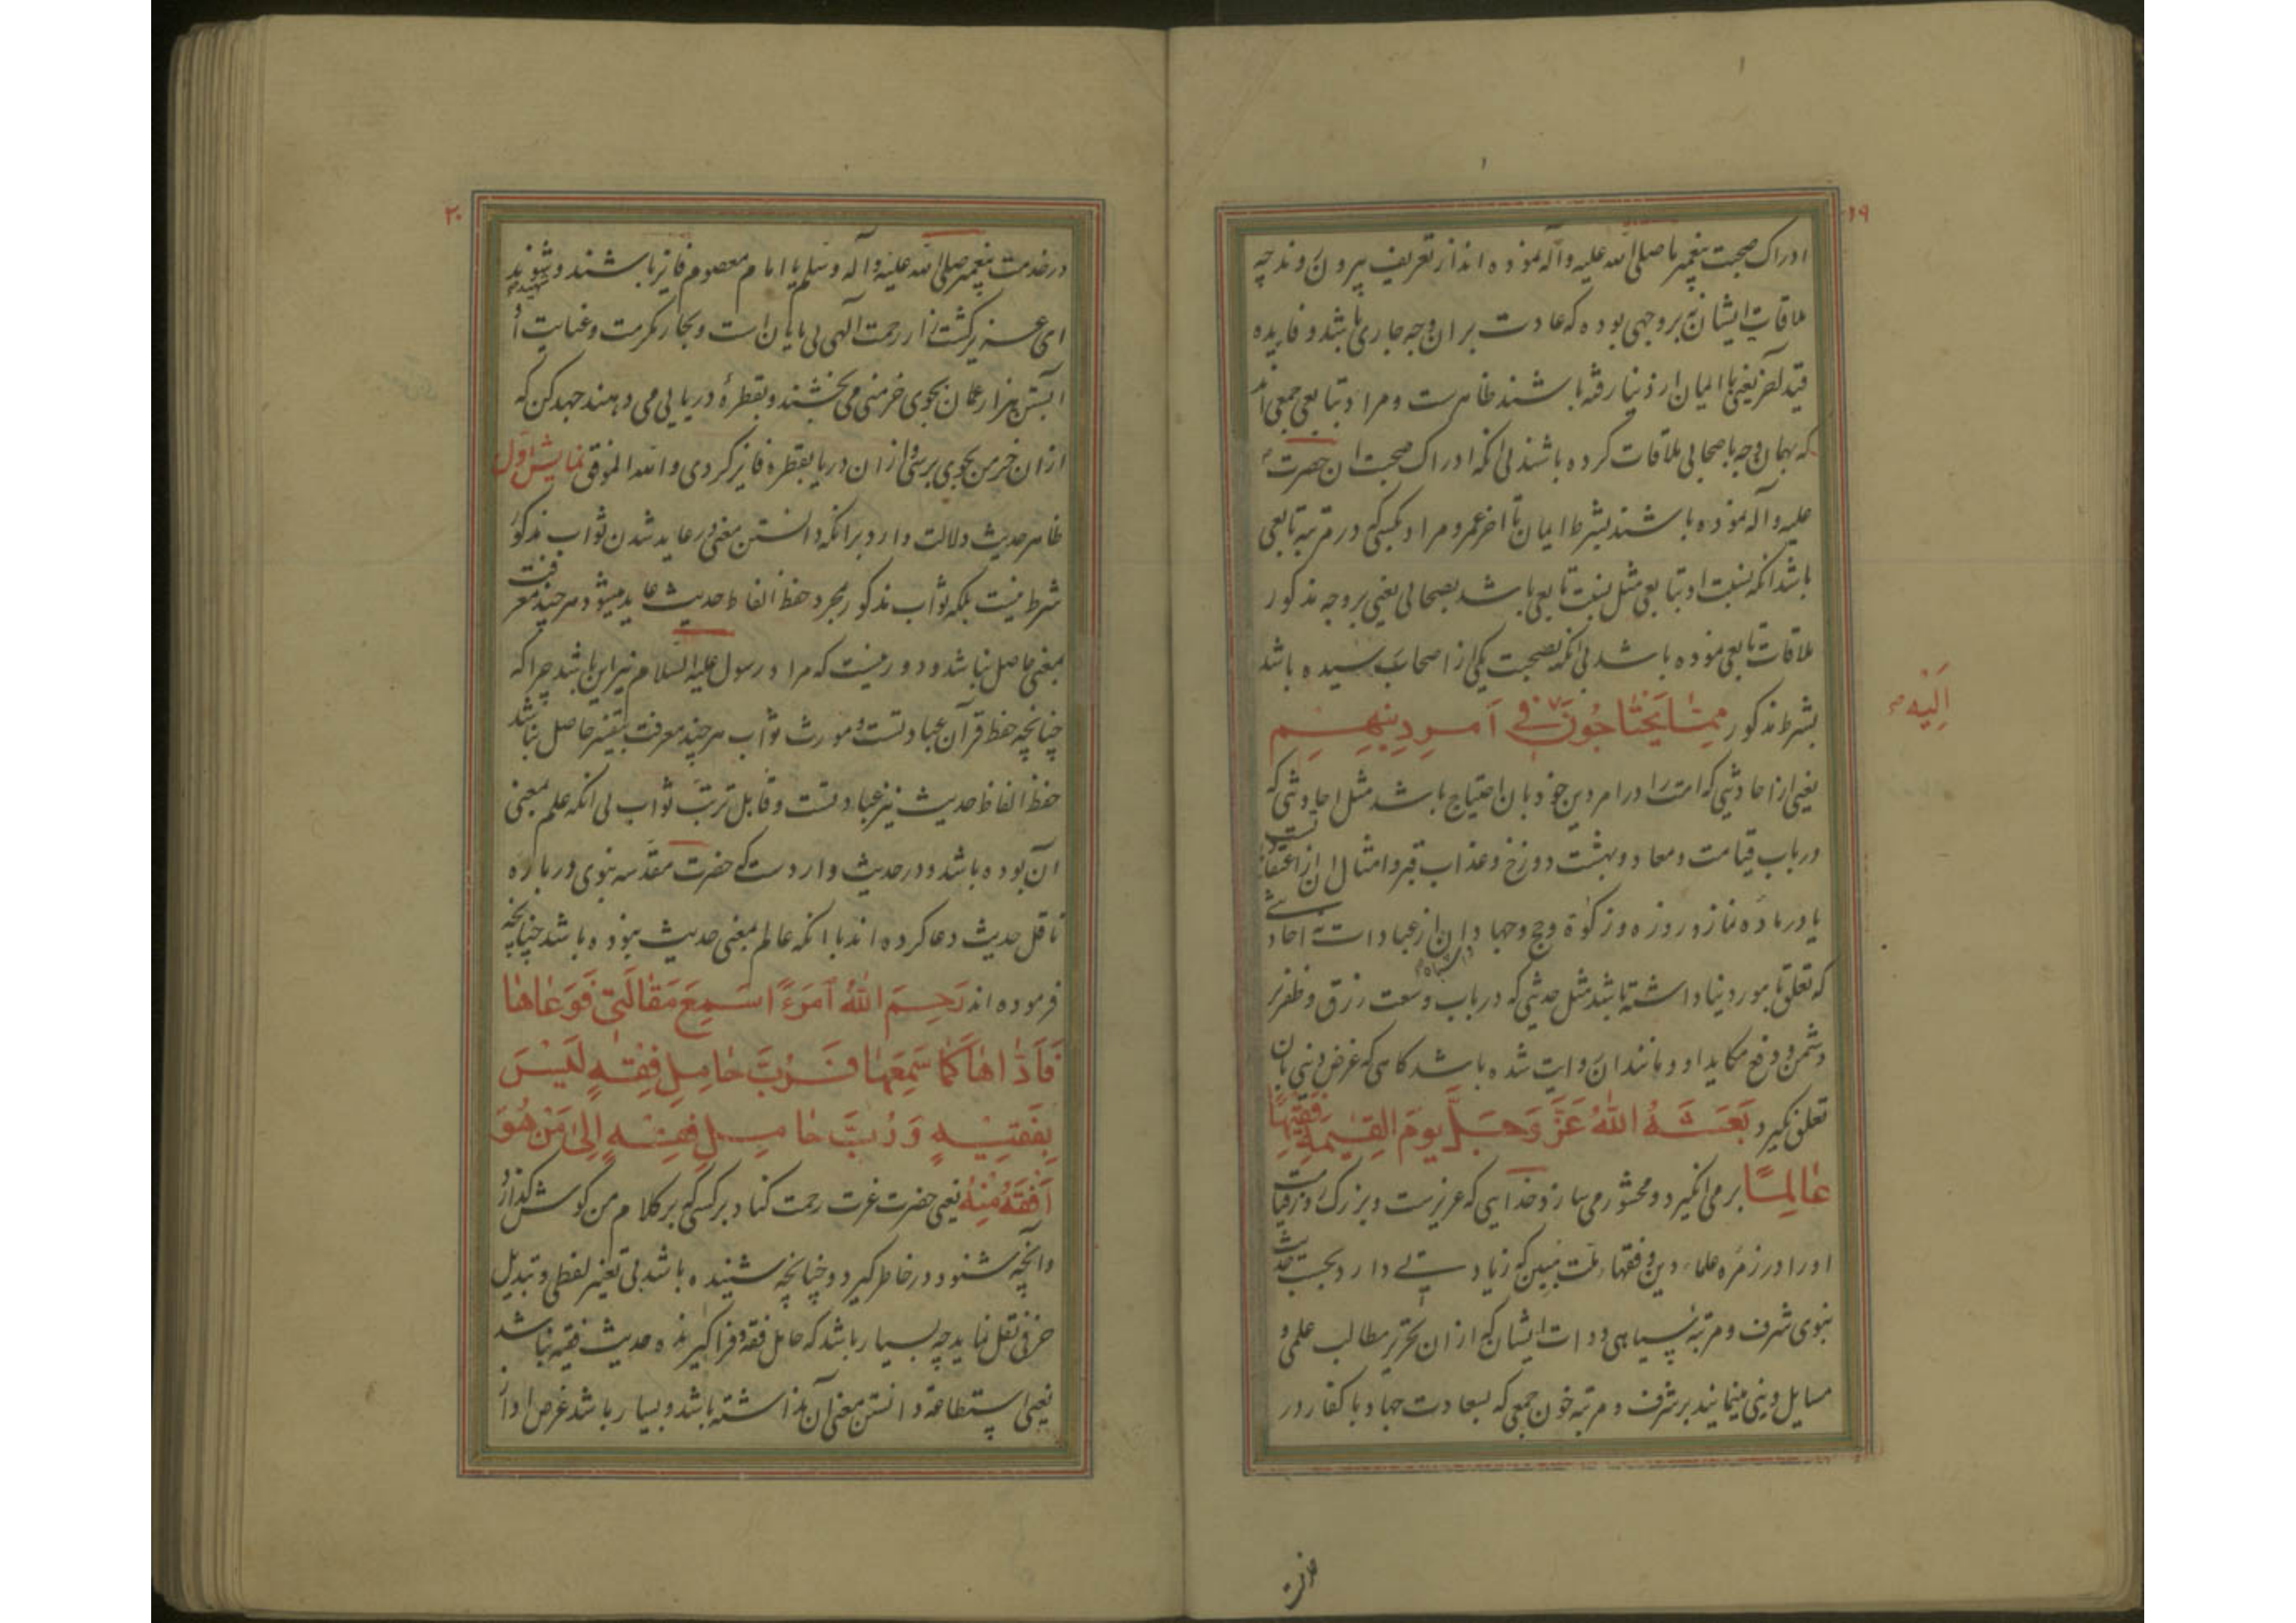 ۱۹
ادراک صحبت پیغمبر ما صلی الله علیه وآله نموده اند از تعریف بیرون روند چه
ملاقات ایشان نه بر وجهی بوده که عادت بر ان وجه جاری باشد و فایده
قید آخر یعنی با ایمان از دنیا رفته باشند ظاهرست و مراد بتابعی جمعی اند
که بهمان وجه با صحابی ملاقات کرده باشند بی انکه ادراک صحبت ان حضرت
علیه وآله نموده باشند بشرط ایمان تا اخر عمر و مراد بکسی که در مرتبه تابعی
باشد انکه نسبت او بتابعی مثل نسبت تابعی باشد بصحابی یعنی بر وجه مذکور
ملاقات تابعی نموده باشد بی انکه بصحبت یکی از اصحاب رسیده باشد
بشرط مذکور مِمّا يَحْتاجُونَ في اَمرِ دِينِهِم
اِلَيْهِ
یعنی از احادیثی که امت را در امر دین خود بان احتیاج باشد مثل احادیثی که
در باب قیامت و معاد و بهشت و دوزخ و عذاب قبر و امثال ان از اعتقادست
یا در ماده نماز و روزه و زکوة و حج و جهاد و اشباه ان از عبادات نه احادیثی
که تعلق بامور دنیا داشته باشد مثل حدیثی که در باب وسعت رزق و ظفر بر
دشمن و دفع مکاید او و مانند ان روایت شده باشد کاهی که غرض دینی بان
تعلق نکیرد بَعَثَهُ اللّٰهُ عَزَّ وَجَلَّ يومَ القِيٰمةِ فَقِيهًا
عٰالِمًا برمی انکیرد و محشور می سازد خدایی که عزیزست و بزرک او را در قیامت
او را در زمره علماء دین و فقهاء ملت مبین که زیادتی دارد بحسب حدیث
نبوی شرف و مرتبه سیاهی دوات ایشان که از ان تحریر مطالب علمی و
مسایل دینی مینمایند بر شرف و مرتبه خون جمعی که بسعادت جهاد با کفار در
۲۰
در خدمت پیغمبر صلی الله علیه وآله وسلم یا امام معصوم فایز باشند و شهید شوند
ای عزیز کشت زار رحمت آلهی بی پایان است و بحار مکرمت و عنایت او
ازان خرمن بجوی برسی و ازان دریا بقطره فایز کردی والله الموفق نمایش اول
ظاهر حدیث دلالت دارد بر انکه دانستن معنی در عاید شدن ثواب مذکور
شرط نیست بلکه ثواب مذکور بمجرد حفظ الفاظ حدیث عاید میشود هر چند معرفت
بمعنی حاصل نباشد و دور نیست که مراد رسول علیه السلام نیز این باشد چرا که
چنانچه حفظ قرآن عبادتست و مورث ثواب هر چند معرفت بتفسیر حاصل نباشد
حفظ الفاظ حدیث نیز عبادتست و قابل ترتب ثواب بی انکه علم بمعنی
آن بوده باشد و در حدیث واردست که حضرت مقدسه نبوی در باره
ناقل حدیث دعا کرده اند با انکه عالم بمعنی حدیث نبوده باشد چنانچه
فرموده اند رَحِمَ اللّٰهُ اَمْرَءًا سَمِعَ مَقٰالَتي فَوَعٰاهٰا
فَاَدّٰاهٰا كَمٰا سَمِعَهٰا فَرُبَّ حٰامِلِ فِقْهٍ لَيْسَ
بِفَقيٖهٍ وَرُبَّ حٰامِلِ فِقْهٍ اِلىٰ مَنْ هُوَ
اَفْقَهُ مِنْهُ یعنی حضرت عزت رحمت کناد بر کسی که بر کلام من کوش کذارد
وآنچه شنود در خاطر کیرد و چنانچه شنیده باشد بی تغییر لفظی و تبدیل
حرفی نقل نماید چه بسیار باشد که حامل فقه و فراکیرنده حدیث فقیه نباشد
یعنی استطاعت دانستن معنی آن نداشته باشد و بسیار باشد غرض او از